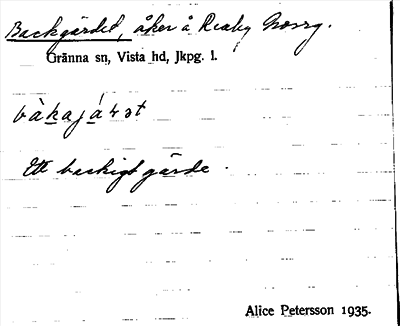 Backgärdet, åker å Reaby Norrg.
Gränna sn, Vista hd, Jkpg. l.
bàkajáṙət
Ett backigt gärde.
Alice Petersson 1935.